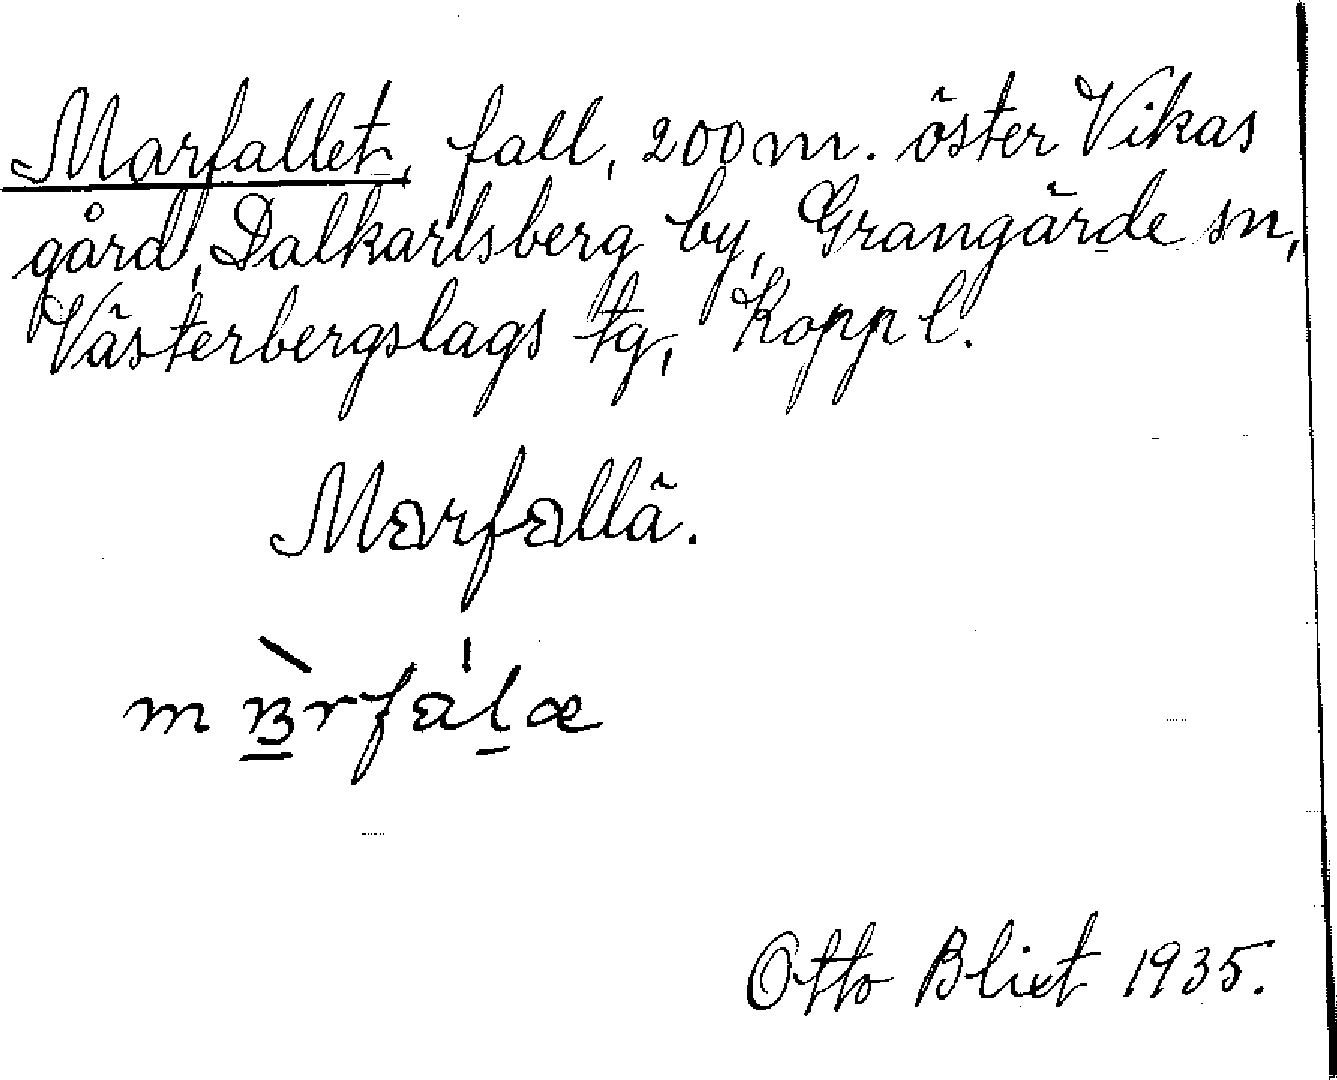 Marfallet, fall, 200 m. öster Vikas
gård, Dalkarlsberg by, Grangärde sn,
Västerbergslags tg, Kopp l.
Marfallä.
Otto Blixt 1935.